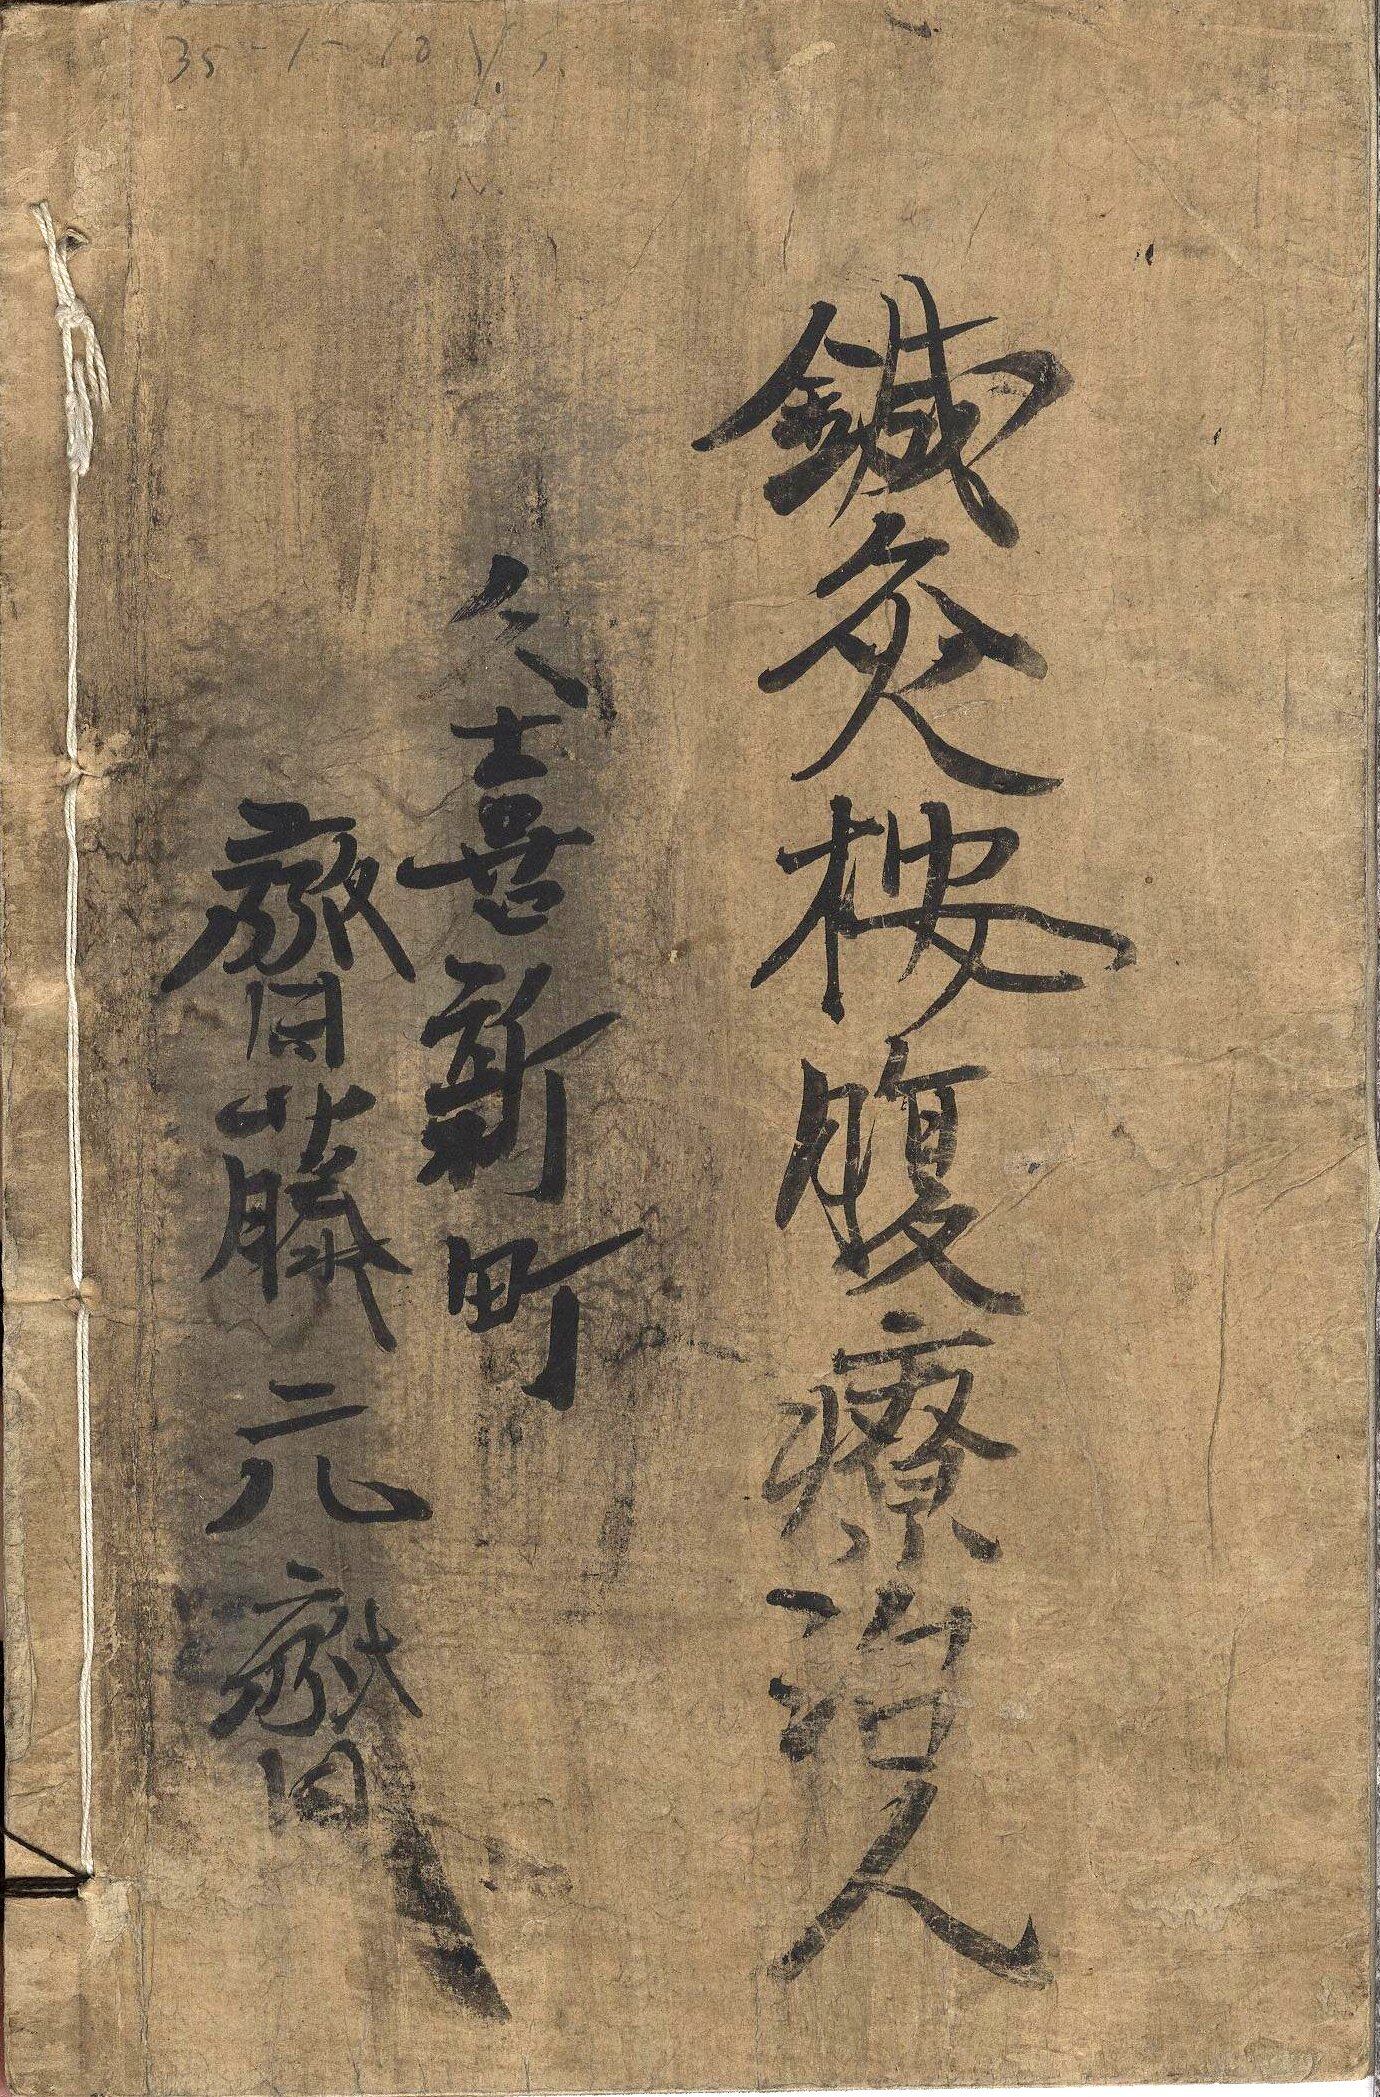 鍼灸按腹療治人
久喜新町
齋藤元齋
35-1-10